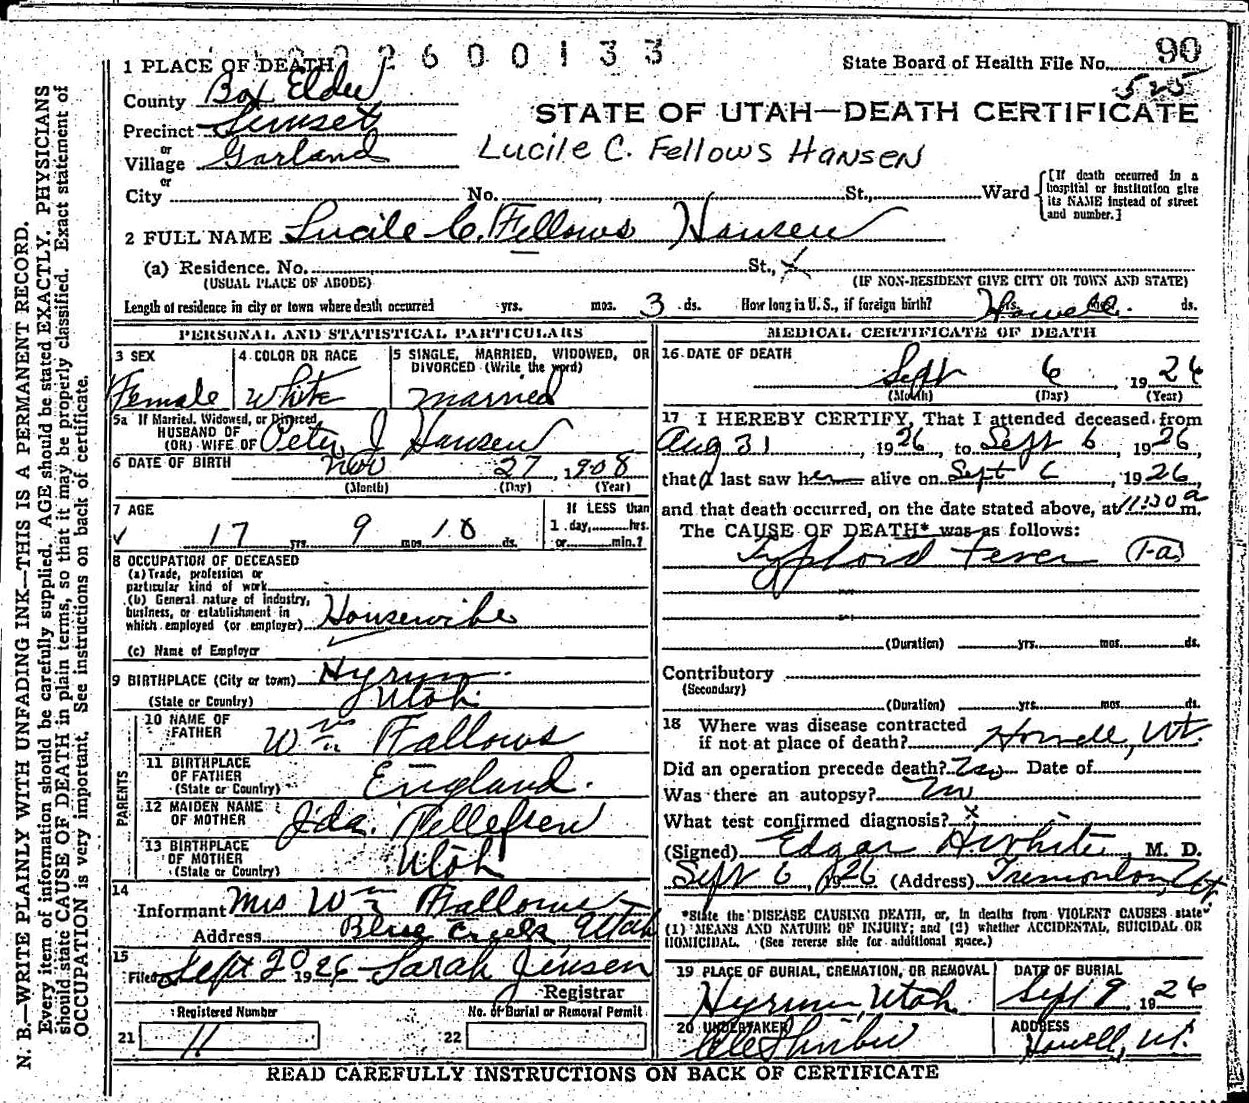 2600133
1 PLACE OF DEATH
State Board of Health File No. 90
525
County Box Elder
STATE OF UTAH—DEATH CERTIFICATE
Precinct Sunset
or
Village Garland
Lucile C. Fellows Hansen
or
City No. St., Ward
[If death occurred in a hospital or institution give its NAME instead of street and number.]
2 FULL NAME Lucile C. Fellows Hansen
(a) Residence. No. St.,
(USUAL PLACE OF ABODE) (IF NON-RESIDENT GIVE CITY OR TOWN AND STATE)
Length of residence in city or town where death occurred yrs. mos. 3 ds. How long in U.S., if foreign birth? yrs. Howell. ds.
PERSONAL AND STATISTICAL PARTICULARS
3 SEX Female
4 COLOR OR RACE White
5 SINGLE, MARRIED, WIDOWED, OR DIVORCED (Write the word) Married
5a If Married, Widowed, or Divorced
HUSBAND OF
(OR) WIFE OF Peter J Hansen
6 DATE OF BIRTH Nov 27, 1908
(Month) (Day) (Year)
7 AGE 17 yrs. 9 mos. 10 ds.
If LESS than
1 day, hrs.
or min.?
8 OCCUPATION OF DECEASED
(a) Trade, profession or
particular kind of work
(b) General nature of industry,
business, or establishment in
which employed (or employer) Housewife
(c) Name of Employer
9 BIRTHPLACE (City or town) Hyrum
(State or Country) Utah.
PARENTS
10 NAME OF FATHER Wm Fallows
11 BIRTHPLACE
OF FATHER
(State or Country) England.
12 MAIDEN NAME
OF MOTHER Ida.
13 BIRTHPLACE
OF MOTHER
(State or Country) Utah
14
Informant Mrs Wm Fallows
Address Blue Creek Utah
15
Filed Sept 20 1926 Sarah Jensen
Registrar
Registered Number No. of Burial or Removal Permit
21 11 22
MEDICAL CERTIFICATE OF DEATH
16 DATE OF DEATH
Sept 6, 1926
(Month) (Day) (Year)
17 I HEREBY CERTIFY, That I attended deceased from
Aug 31, 1926, to Sept 6, 1926,
that I last saw her alive on Sept 6, 1926,
and that death occurred, on the date stated above, at 11:30 a m.
The CAUSE OF DEATH* was as follows:
Typhoid Fever (1-a)
(Duration) yrs. mos. ds.
Contributory
(Secondary)
(Duration) yrs. mos. ds.
18 Where was disease contracted
if not at place of death? Howell, Ut.
Did an operation precede death? No Date of
Was there an autopsy? No
What test confirmed diagnosis? x
(Signed) Edgar H White, M. D.
Sept 6, 1926 (Address) Tremonton, Ut.
*State the DISEASE CAUSING DEATH, or, in deaths from VIOLENT CAUSES state
(1) MEANS AND NATURE OF INJURY; and (2) whether ACCIDENTAL, SUICIDAL OR
HOMICIDAL. (See reverse side for additional space.)
19 PLACE OF BURIAL, CREMATION, OR REMOVAL DATE OF BURIAL
Hyrum, Utah Sept 9, 1926
20 UNDERTAKER ADDRESS
Howell, Ut.
READ CAREFULLY INSTRUCTIONS ON BACK OF CERTIFICATE
N. B.—WRITE PLAINLY WITH UNFADING INK—THIS IS A PERMANENT RECORD.
Every item of information should be carefully supplied. AGE should be stated EXACTLY. PHYSICIANS
should state CAUSE OF DEATH in plain terms, so that it may be properly classified. Exact statement of
OCCUPATION is very important. See instructions on back of certificate.